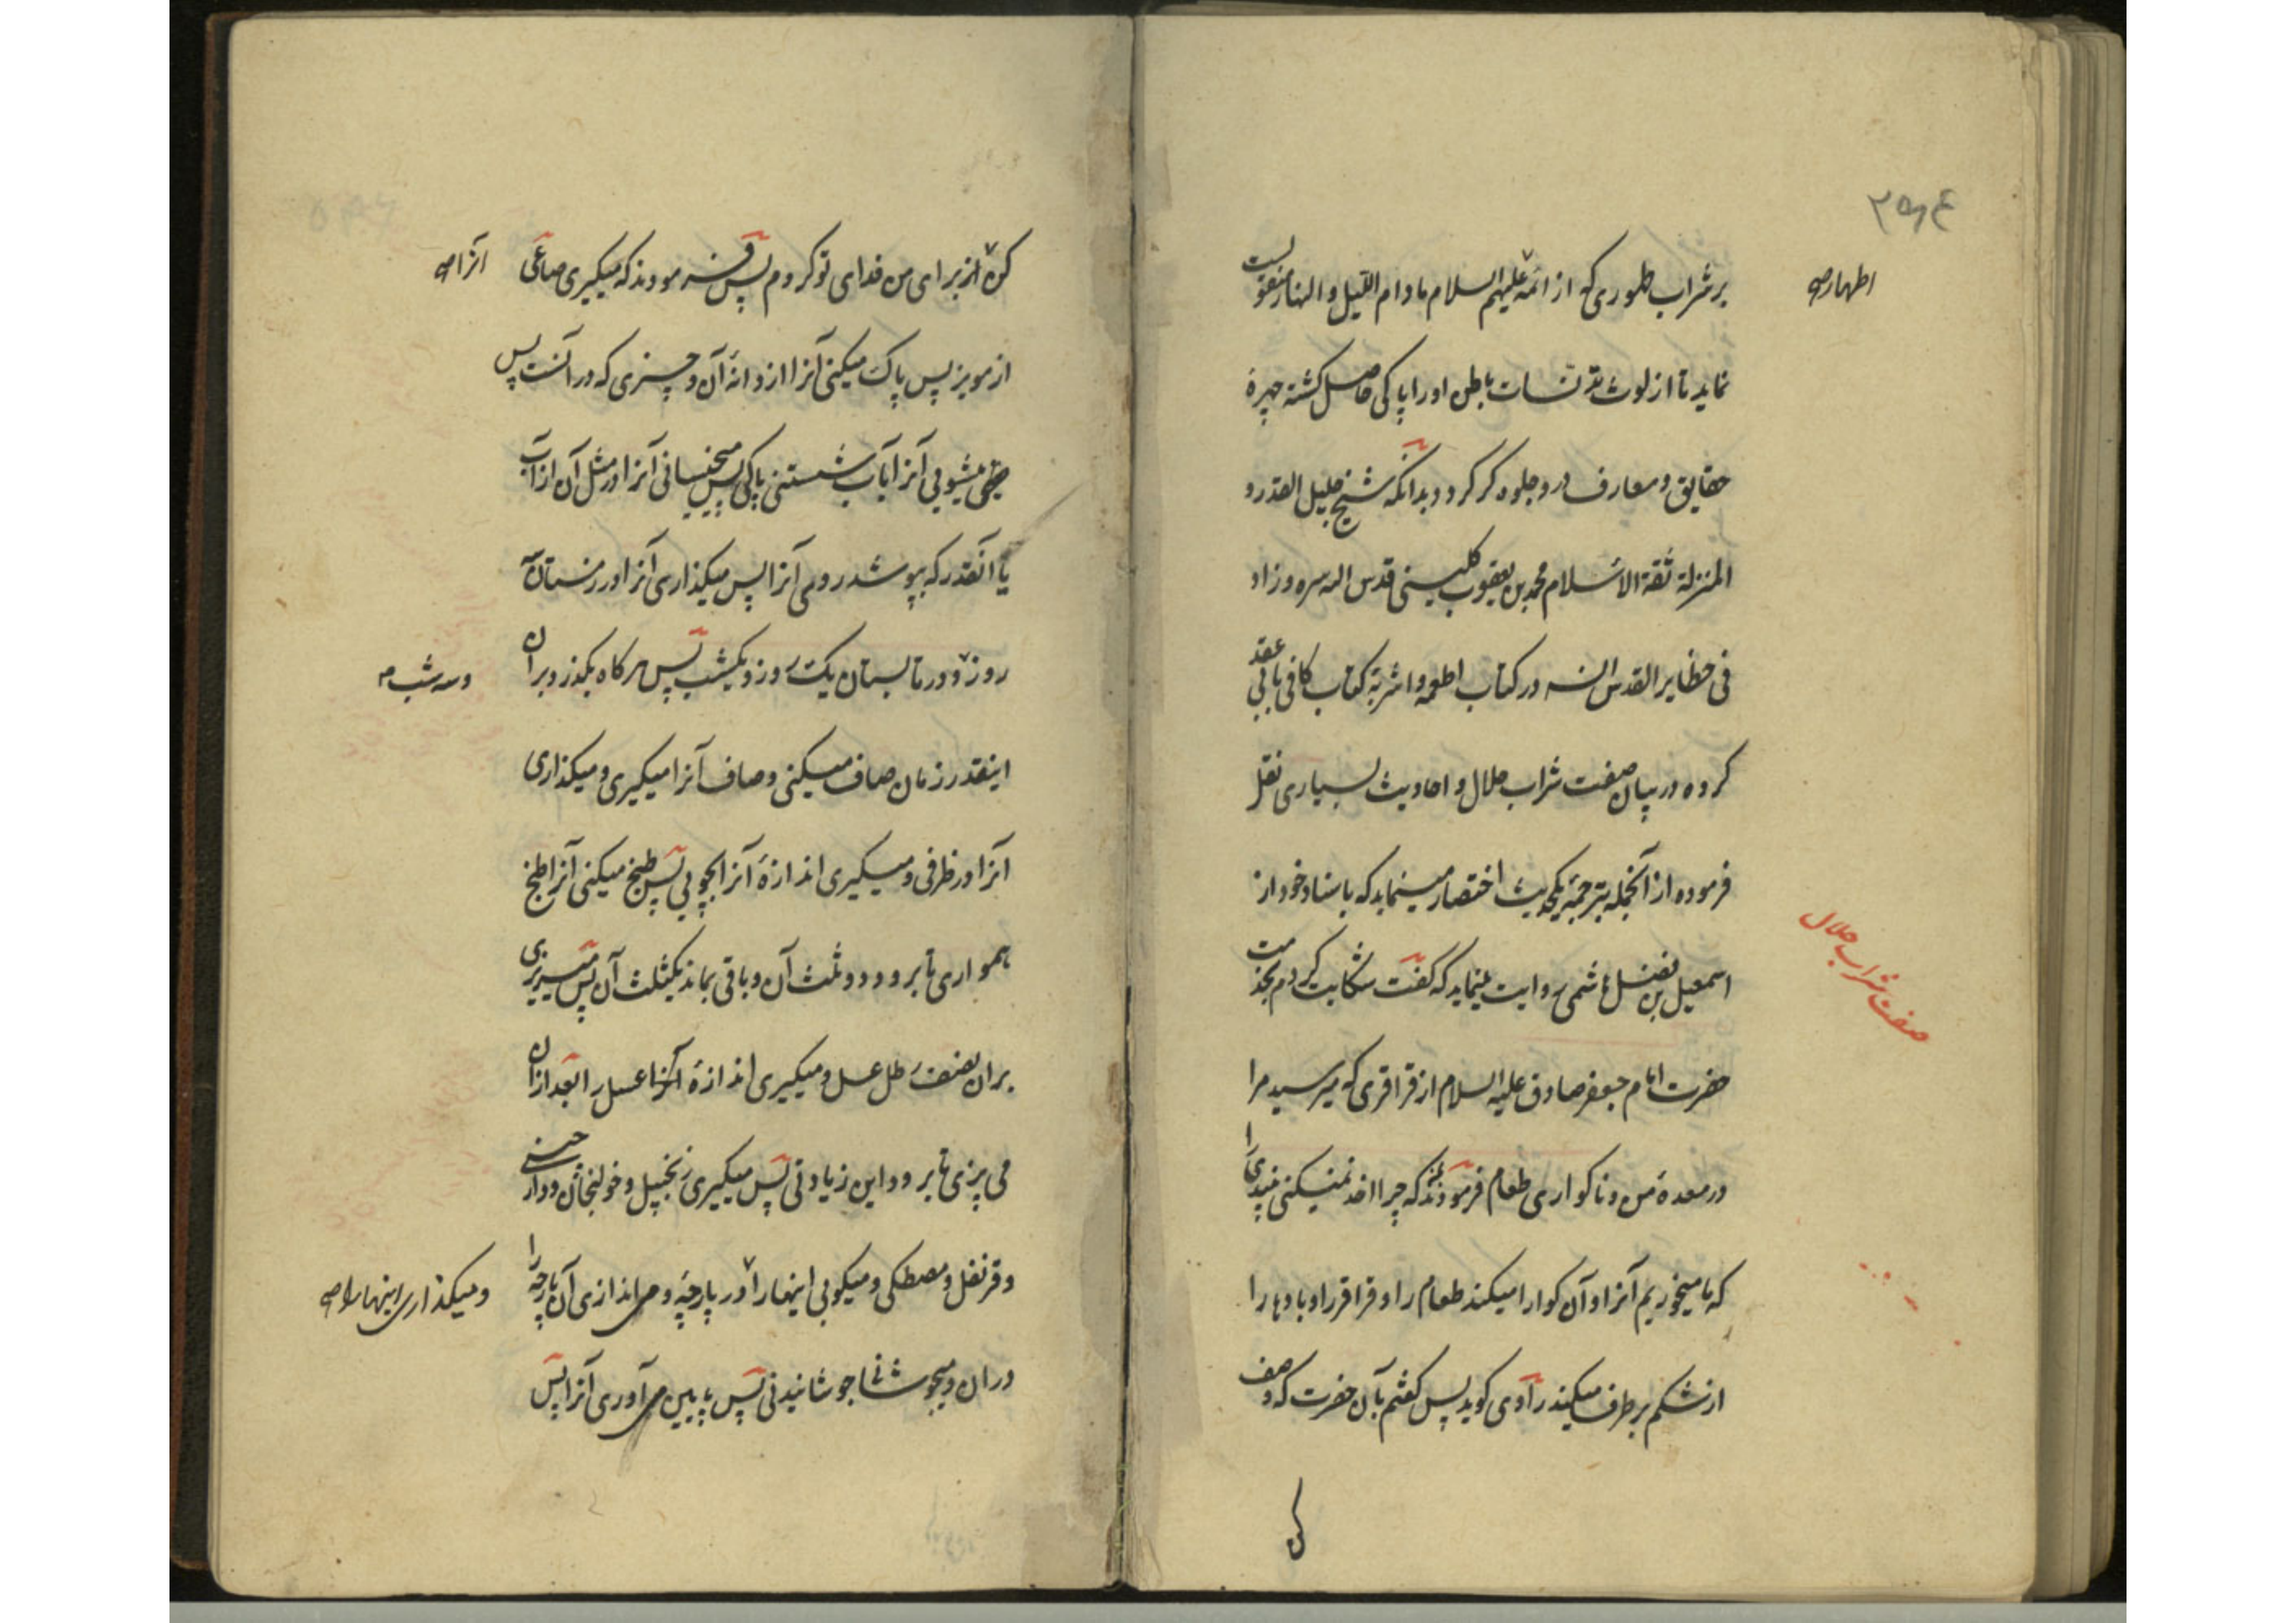 بر شراب طهوری که از ائمه علیهم السلام مادام اللیل والنهار منقولست
اطهار صح
نماید تا از لوث تدنسات باطن او را پاکی حاصل کشته چهرهٔ
حقایق و معارف درو جلوه کر کردد بدانکه شیخ جلیل القدر و
المنزلة ثقة الاسلام محمد بن یعقوب کلینی قدس الله سره و زاد
فی حظایر القدس انسه در کتاب اطعمه و اشربهٔ کتاب کافی بابی عقد
کرده در بیان صفت شراب حلال و احادیث بسیاری نقل
فرموده از آنجمله بترجمهٔ یکحدیث اختصار مینماید که باسناد خود از
صفت شراب حلال
اسمعیل بن فضل هاشمی روایت مینماید که گفت شکایت کردم بخدمت
حضرت امام جعفر صادق علیه السلام از قراقری که میرسید مرا
در معدهٔ من و ناکواری طعام فرمودند که چرا اخذ نمیکنی نبیذی را
که ما میخوریم آنرا و آن کوارا میکند طعام را و قراقر را و بادها را
از شکم بر طرف میکند راوی کوید پس کفتم بآن حضرت که وصف
کن
کن از برای من فدای تو کردم پس فرمودند که میکیری صاعی
آنرا صح
از مویز پس پاک میکنی آنرا از دانهٔ آن و چیزی که در آنست پس
میشویی آنرا بآب شستنی پاکی پس میخیسانی آنرا در مثل آن از آب
یا آنقدر که بپوشد روی آنرا پس میکذاری آنرا در زمستان سه
روز و در تابستان یک روز و یکشب پس هرکاه بکذرد بران
وسه شب صح
اینقدر زمان صاف میکنی و صاف آنرا میکیری و میکذاری
آنرا در ظرفی و میکیری اندازهٔ آنرا بچوبی پس طبخ میکنی آنرا طبخ
همواری تا برود دو ثلث آن و باقی بماند یکثلث آن پس میریزی
بران نصف رطل عسل و میکیری اندازهٔ آنرا عسل را بعد ازان
می پزی تا برود این زیادتی پس میکیری زنجبیل و خولنجان و دارچینی
و قرنفل و مصطکی و میکوبی اینها را در پارچهٔ و می اندازی آن پارچه را
و میکذاری اینها را صح
دران و میجوشانی جوشانیدنی پس پایین می آوری آنرا پس